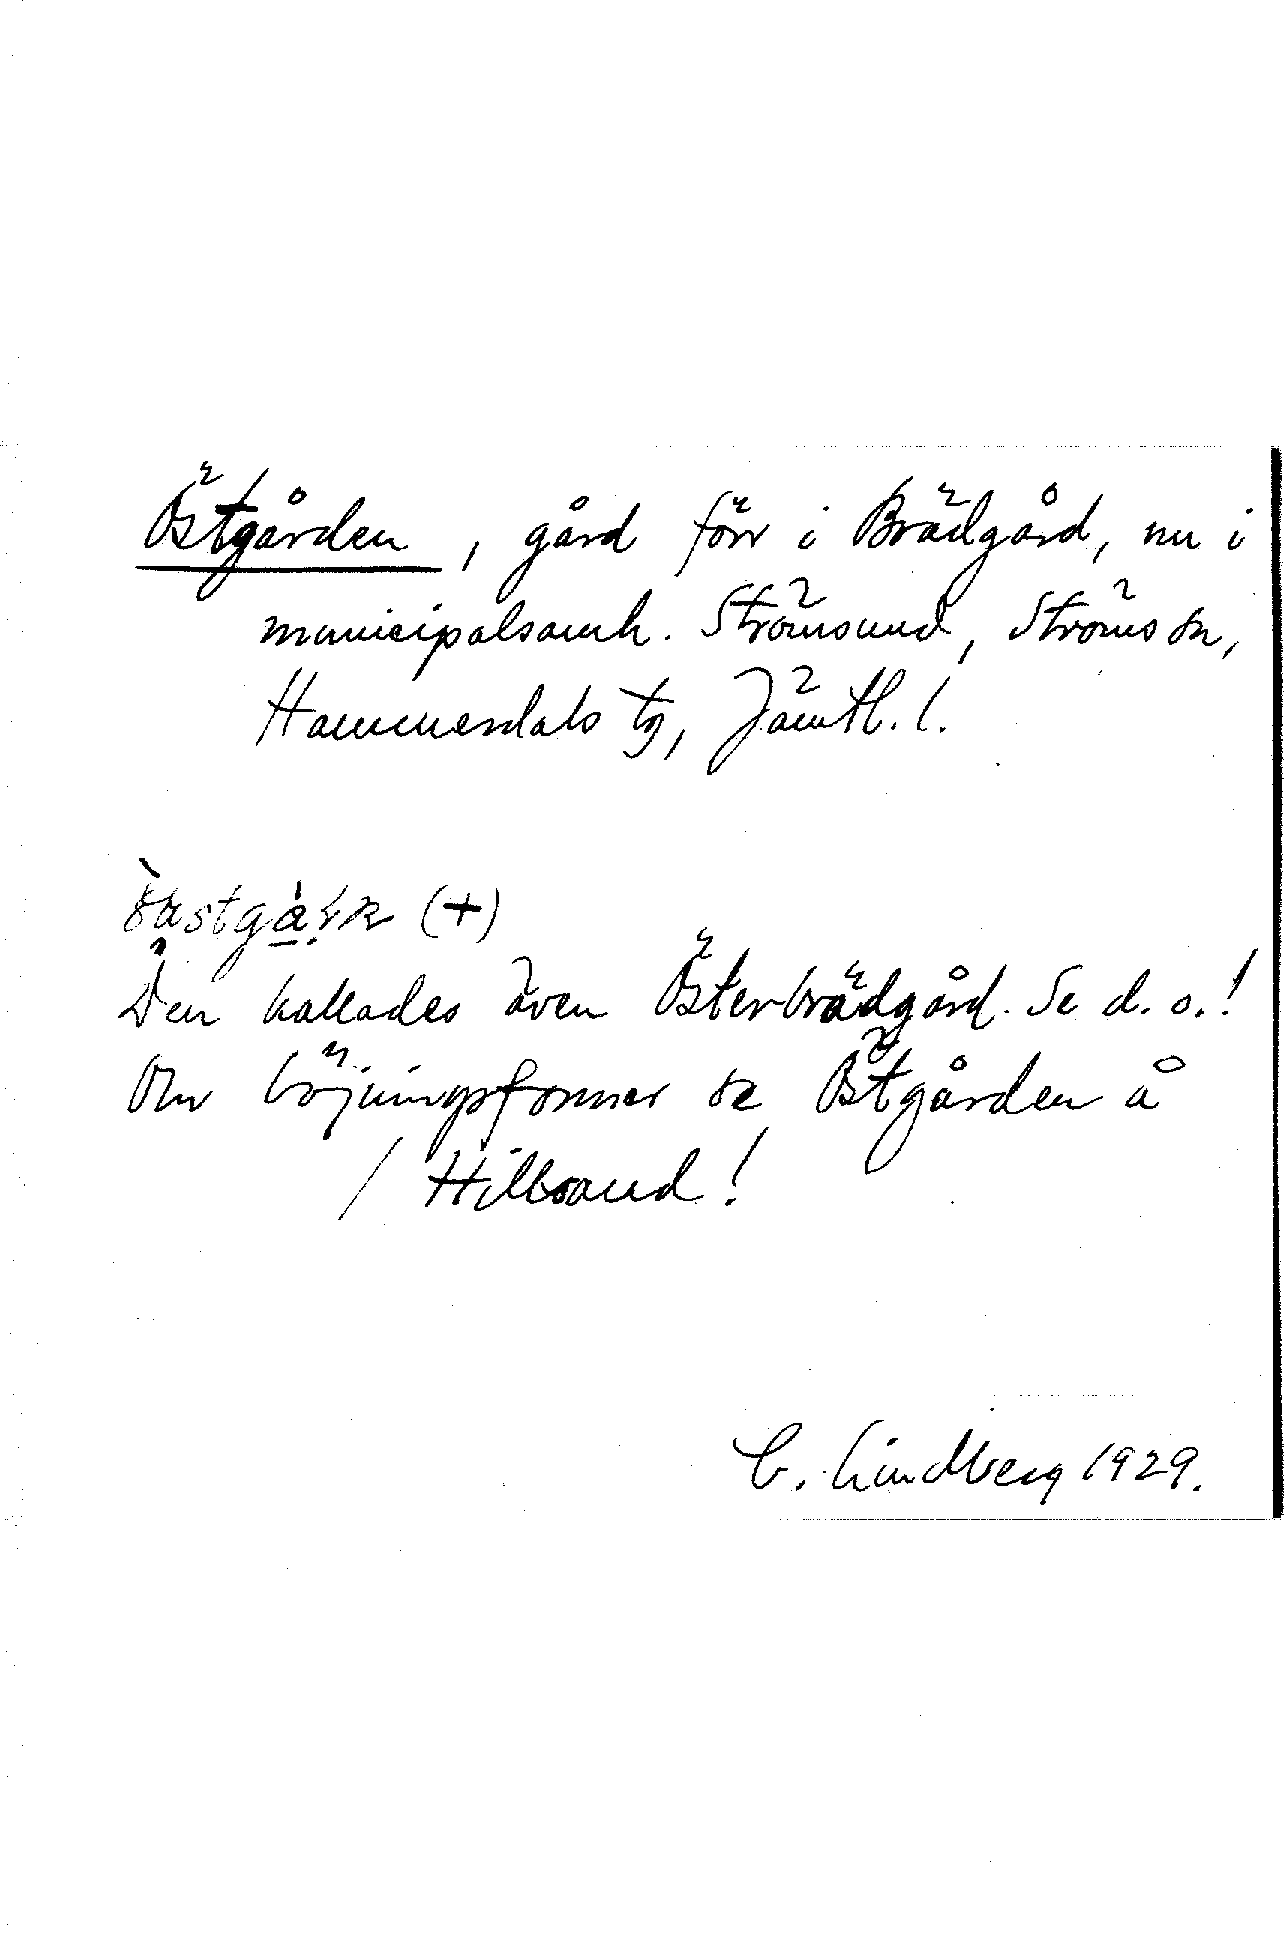 Östgården, gård förr i Brädgård, nu i
municipalsamh. Strömsund, Ströms sn,
Hammerdals tg, Jämtl. l.
(+)
Den kallades även Österbrädgård. Se d. o.!
Om böjningsformer se Östgården å
/ Hillsand!
C. Lindberg 1929.